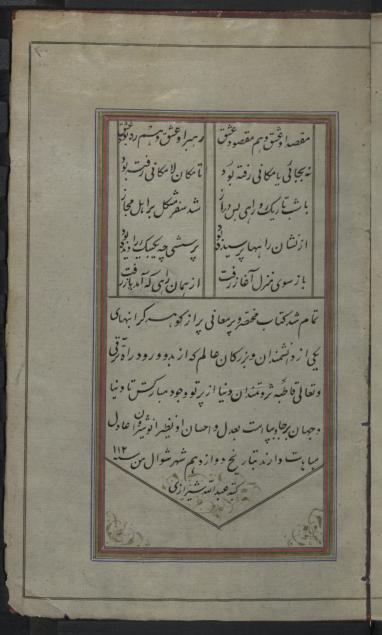 مقصد او عشق و هم مقصود عشق رهبر او عشق و هم ره بود عشق
نه بجائی یا مکانی رفته بود تا مکان لامکانی رفت بود
با شب تاریک و راهی بس دراز شد سفر مشکل بر اهل مجاز
از نشان راهها پرسیده بود پرسشی چه یک بیک را دیده بود
باز سوی منزل آغاز رفت از همان راهی که آمد باز رفت
تمام شد کتاب مختصر و پر معانی پر از گوهر گرانبهای
یکی از دانشمندان و بزرگان عالم که از بدو ورود راه ترقی
و تعالی قاطبه ثروتمندان دنیا از پرتو وجود مبارکش تا دنیا
و جهان برجا و بپاست بعدل و احسان او نظیر انوشیروان عادل
مباهات دارند بتاریخ دوازدهم شهر شوال من سنه ۱۱۲
کتبه عبدالله شیرازی